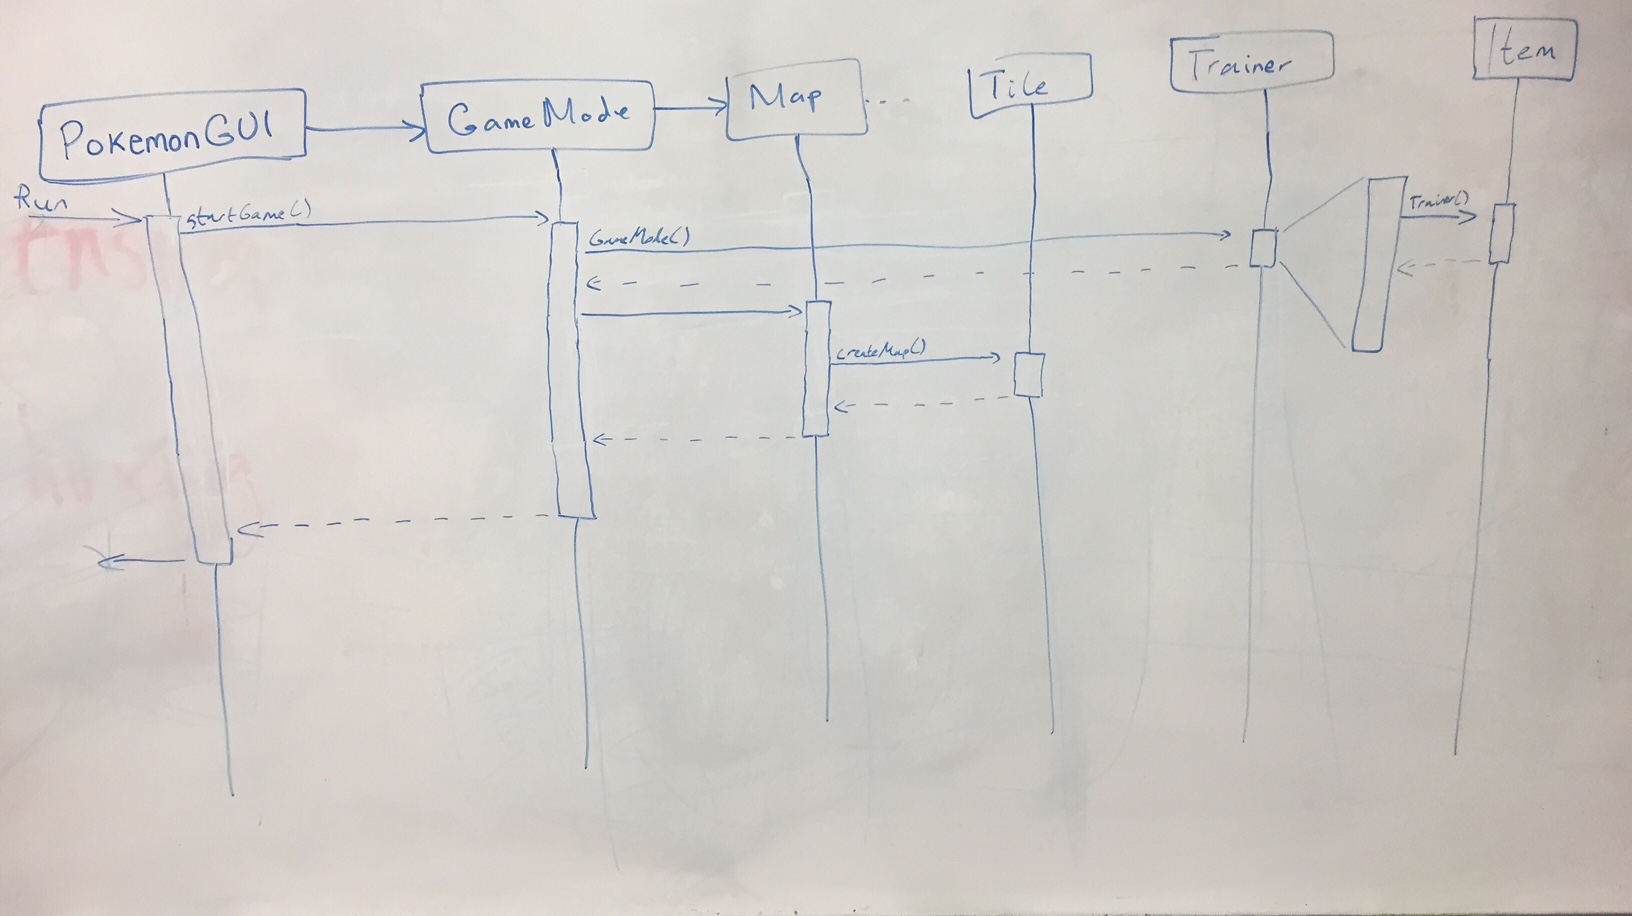 PokemonGUI
GameMode
Map
Tile
Trainer
Item
Run
startGame()
GameMode()
Trainer()
createMap()